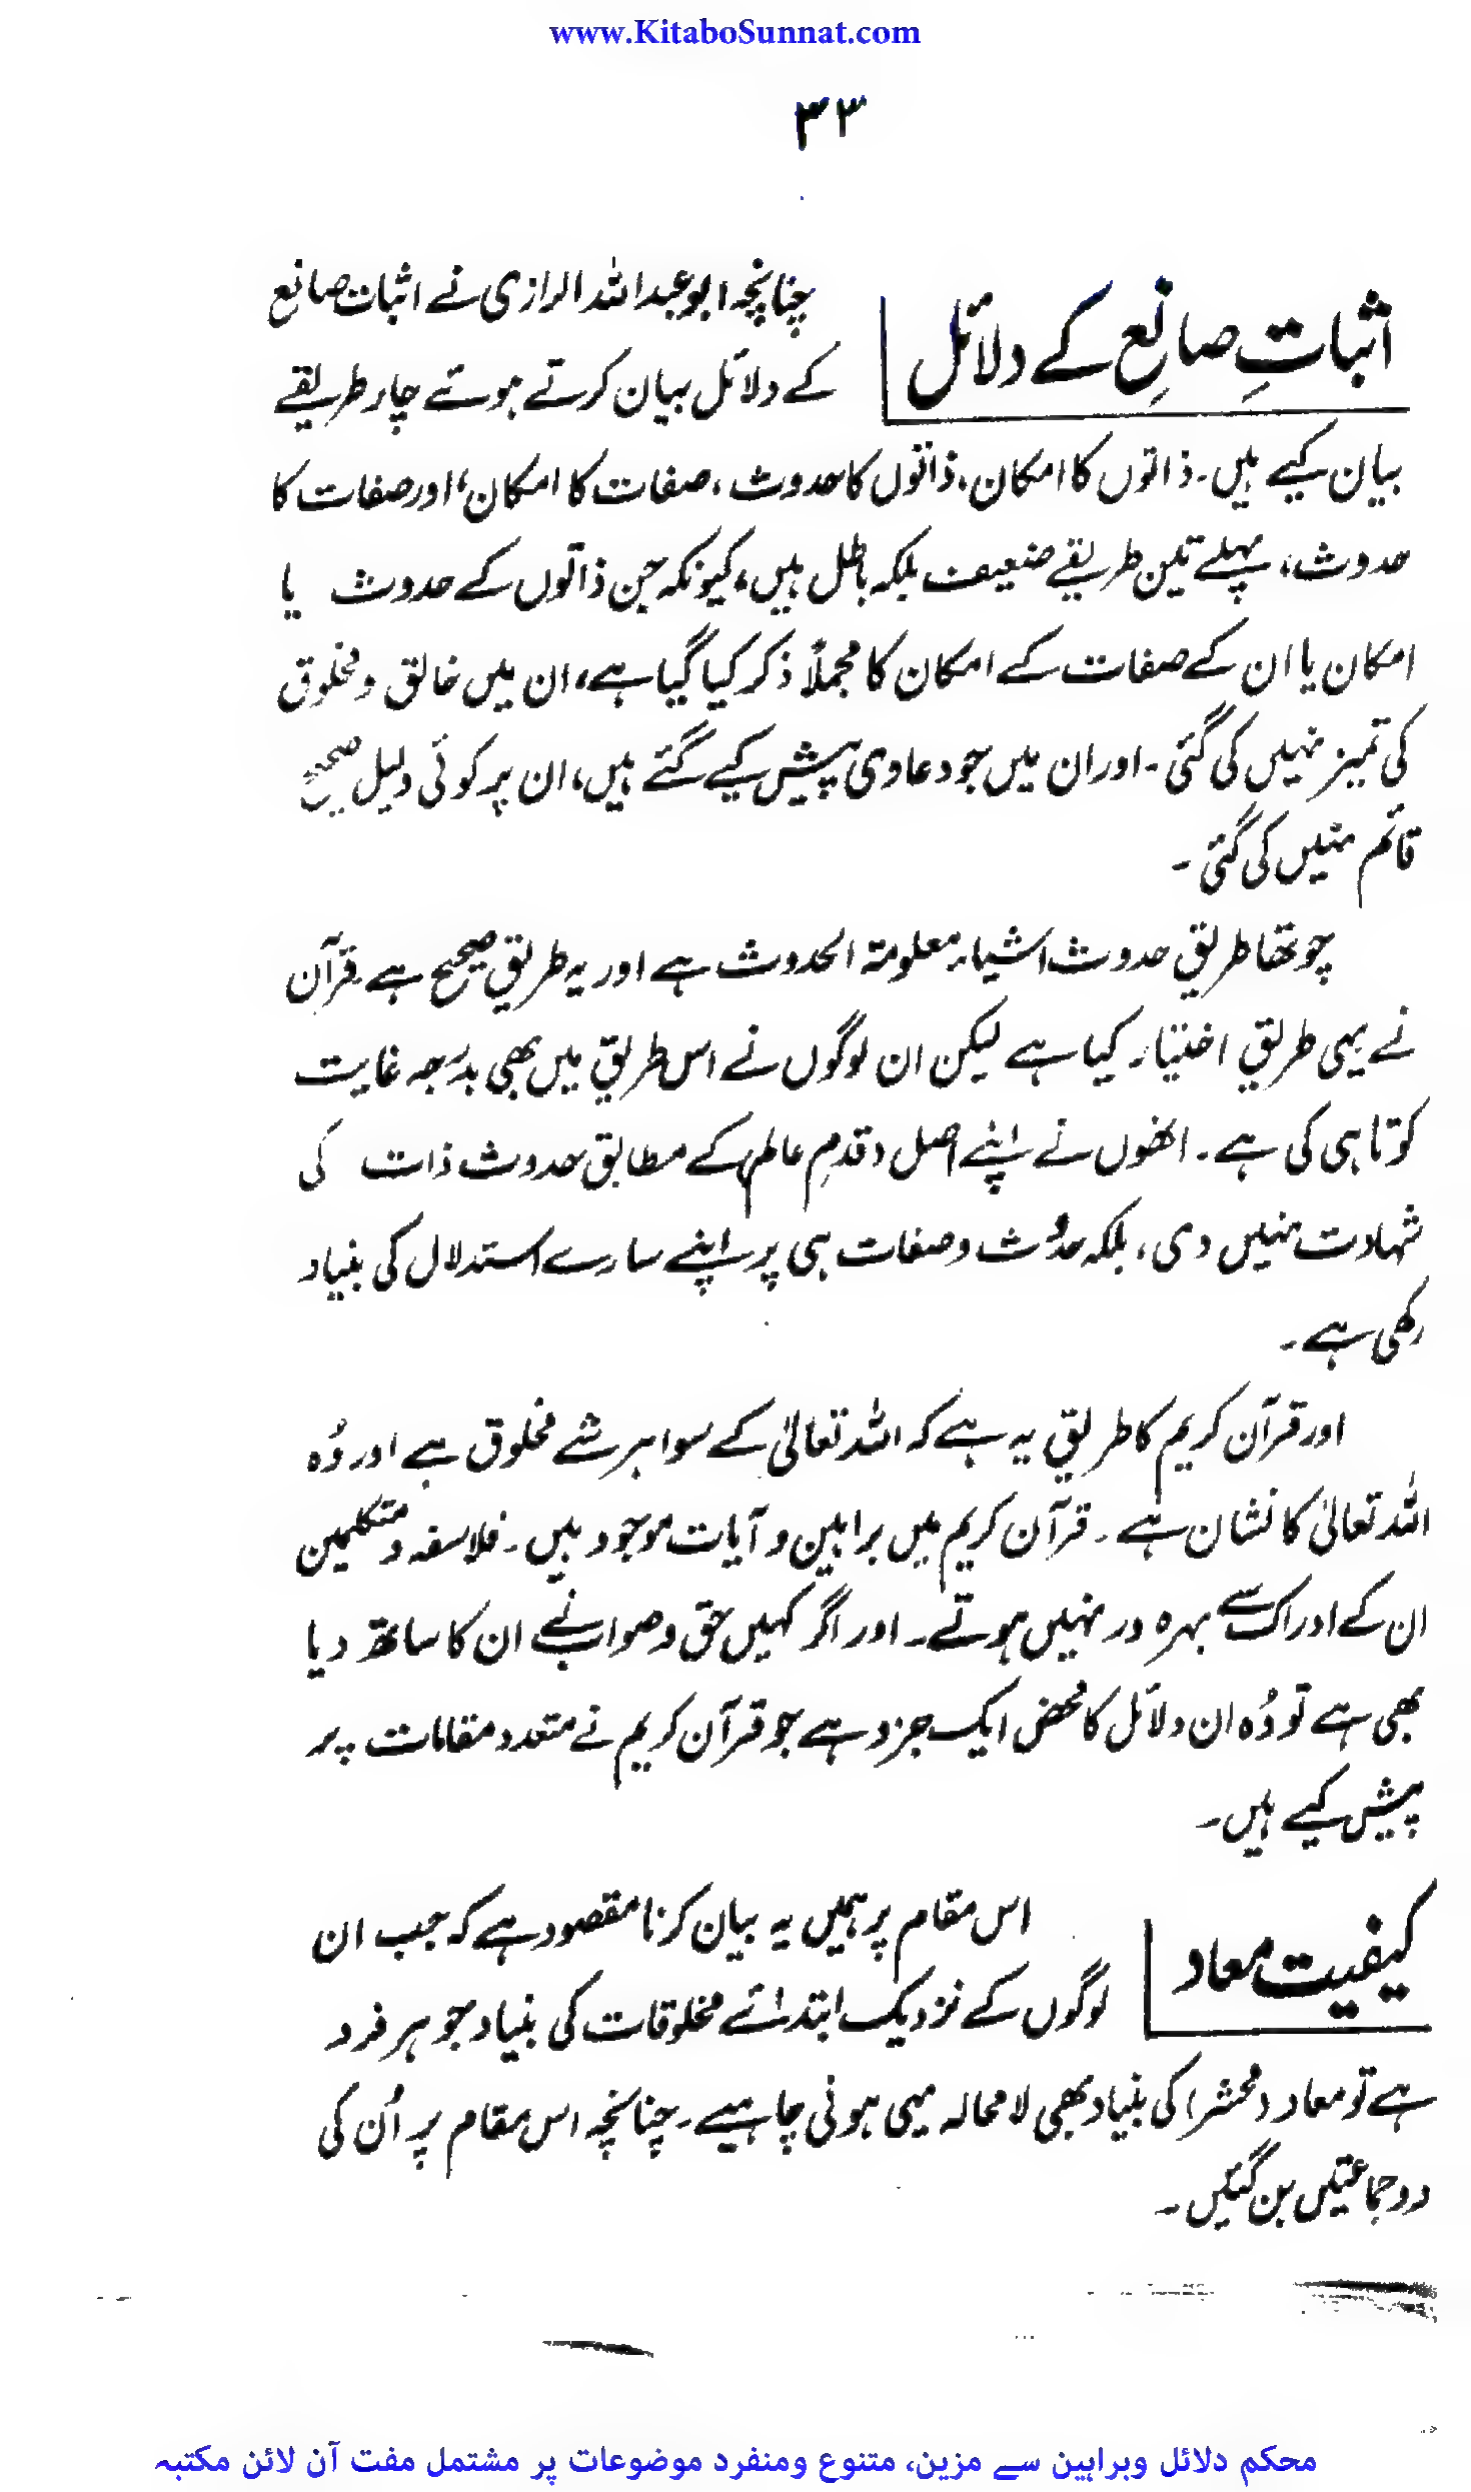 www.KitaboSunnat.com
۳۳
اثباتِ صانِع کے دلائل
چنانچہ ابوعبداللہ الرازی نے اثبات صانع
کے دلائل بیان کرتے ہوئے چار طریقے
بیان کیے ہیں۔ ذاتوں کا امکان، ذاتوں کا حدوث، صفات کا امکان، اور صفات کا
حدوث، پہلے تین طریقے ضعیف بلکہ باطل ہیں، کیونکہ جن ذاتوں کے حدوث یا
امکان یا ان کے صفات کے امکان کا مجملاً ذکر کیا گیا ہے، ان میں خالق و مخلوق
کی تمیز نہیں کی گئی۔ اور ان میں جو دعاوی پیش کیے گئے ہیں، ان پر کوئی دلیل صحیح
قائم نہیں کی گئی۔
چوتھا طریق حدوث اشیاء معلومۃ الحدوث ہے اور یہ طریق صحیح ہے۔ قرآن
نے یہی طریق اختیار کیا ہے لیکن ان لوگوں نے اس طریق میں بھی بدرجہ غایت
کوتاہی کی ہے۔ انھوں نے اپنے اصل (قدمِ عالم) کے مطابق حدوث ذات کی
شہادت نہیں دی، بلکہ حدُوث و صفات ہی پر اپنے سارے استدلال کی بنیاد
رکھی ہے۔
اور قرآن کریم کا طریق یہ ہے کہ اللہ تعالیٰ کے سوا ہر شے مخلوق ہے اور وُہ
اللہ تعالیٰ کا نشان ہے۔ قرآن کریم میں براہین و آیات موجود ہیں۔ فلاسفہ و متکلمین
ان کے ادراک سے بہرہ ور نہیں ہوتے۔ اور اگر کہیں حق و صواب نے ان کا ساتھ دیا
بھی ہے تو وُہ ان دلائل کا محض ایک جزو ہے جو قرآن کریم نے متعدد مقامات پر
پیش کیے ہیں۔
کیفیت معاد
اس مقام پر ہمیں یہ بیان کرنا مقصود ہے کہ جب ان
لوگوں کے نزدیک ابتدائے مخلوقات کی بنیاد جوہر فرد
ہے تو معاد (محشر) کی بنیاد بھی لا محالہ یہی ہونی چاہیے۔ چنانچہ اس مقام پر اُن کی
دو جماعتیں بن گئیں۔
محکم دلائل وبراہین سے مزین، متنوع ومنفرد موضوعات پر مشتمل مفت آن لائن مکتبہ